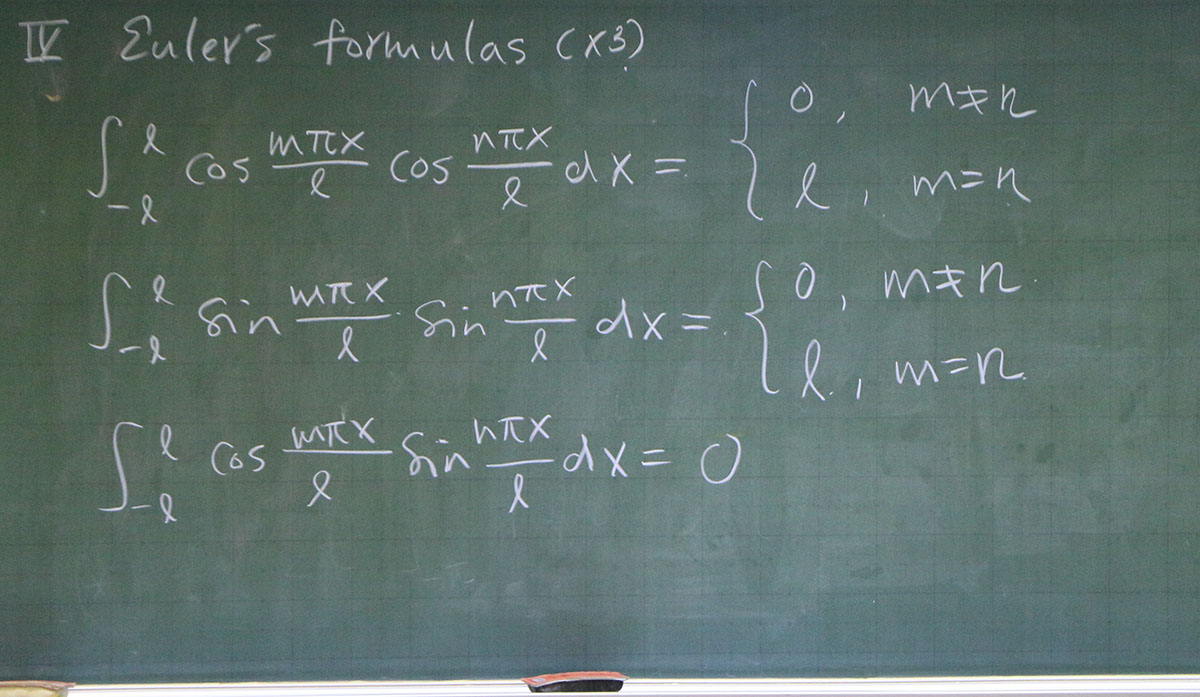 IV Euler's formulas (x3)
∫_{-ℓ}^{ℓ} cos mπx/ℓ cos nπx/ℓ dx = { 0, m≠n
ℓ, m=n
∫_{-ℓ}^{ℓ} sin mπx/ℓ · sin nπx/ℓ dx = { 0, m≠n
ℓ, m=n
∫_{-ℓ}^{ℓ} cos mπx/ℓ sin nπx/ℓ dx = 0